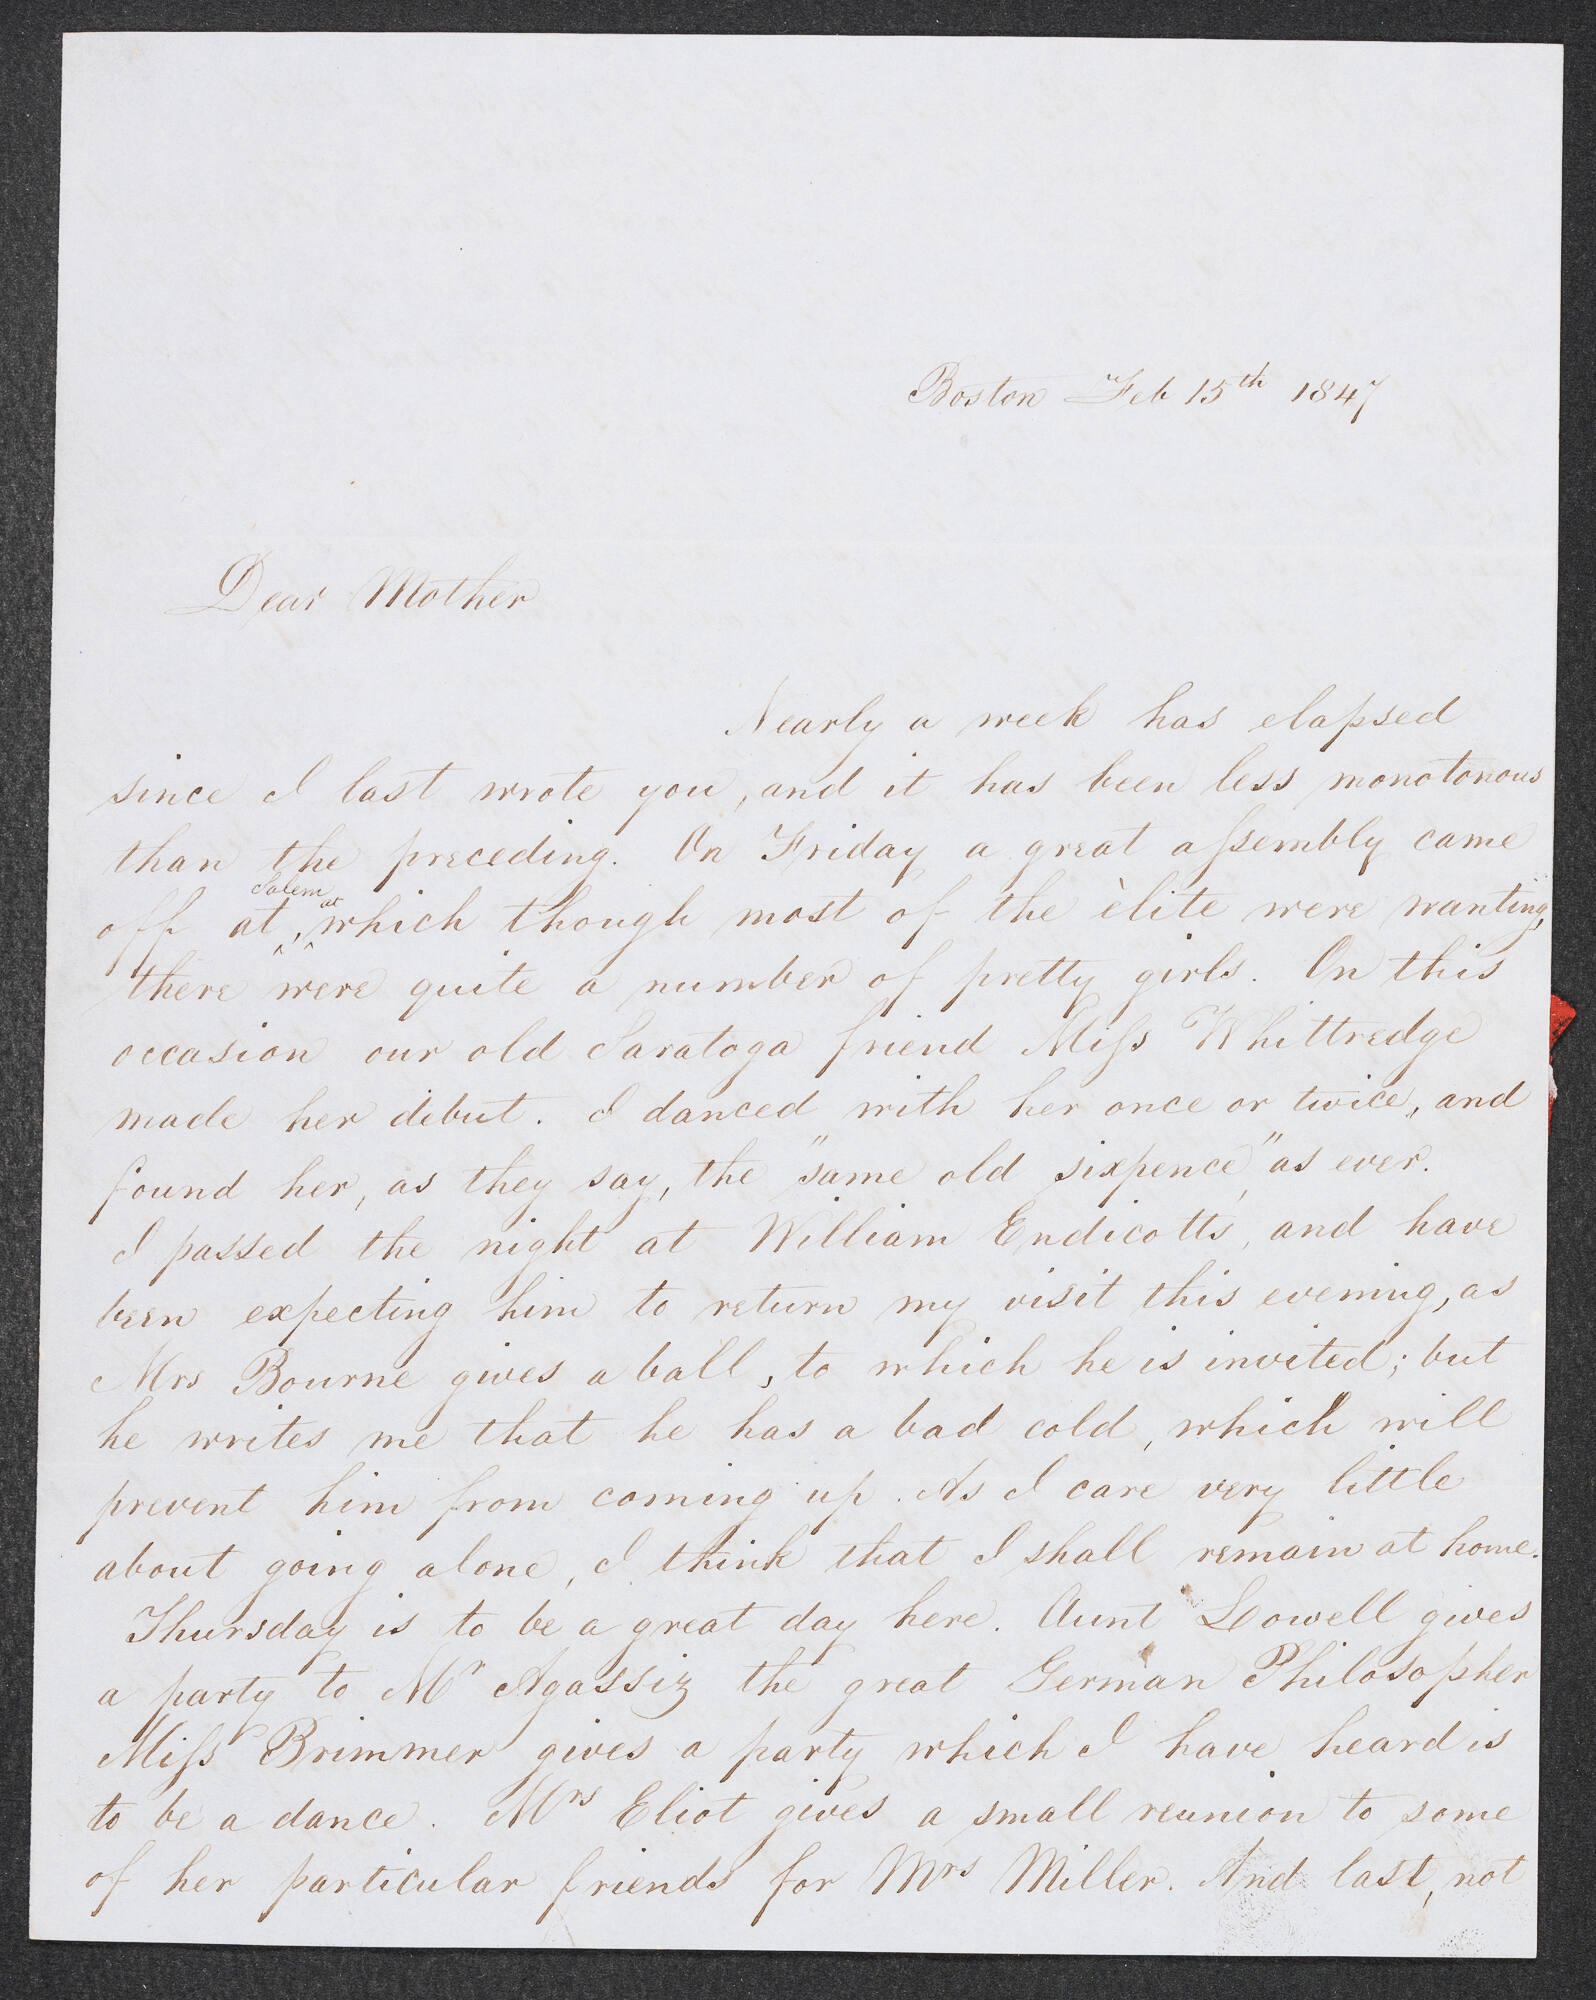 Boston Feb 15th 1847
Dear Mother
Nearly a week has elapsed
since I last wrote you, and it has been less monotonous
than the preceding. On Friday a great assembly came
off at Salem, at which though most of the èlite were wanting,
there were quite a number of pretty girls. On this
occasion our old Saratoga friend Miss Whittredge
made her debut. I danced with her once or twice, and
found her, as they say, the "same old sixpence," as ever.
I passed the night at William Endicotts, and have
been expecting him to return my visit this evening, as
Mrs Bourne gives a ball, to which he is invited; but
he writes me that he has a bad cold, which will
prevent him from coming up. As I care very little
about going alone, I think that I shall remain at home.
Thursday is to be a great day here. Aunt Lowell gives
a party to Mr Agassiz the great German Philosopher
Miss Brimmer gives a party which I have heard is
to be a dance. Mrs Eliot gives a small reunion to some
of her particular friends for Mrs Miller. And last, not